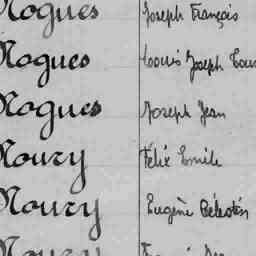 Nogues Joseph François
Nogues Louis Joseph
Nogues Joseph Jean
Noury Félix Emile
Noury Eugène Célestin
Noury